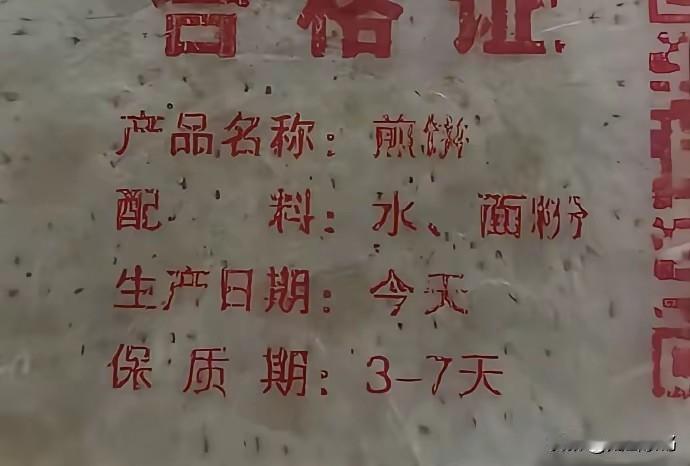 合格证
产品名称：煎饼
配 料：水、面粉
生产日期：今天
保 质 期：3-7天